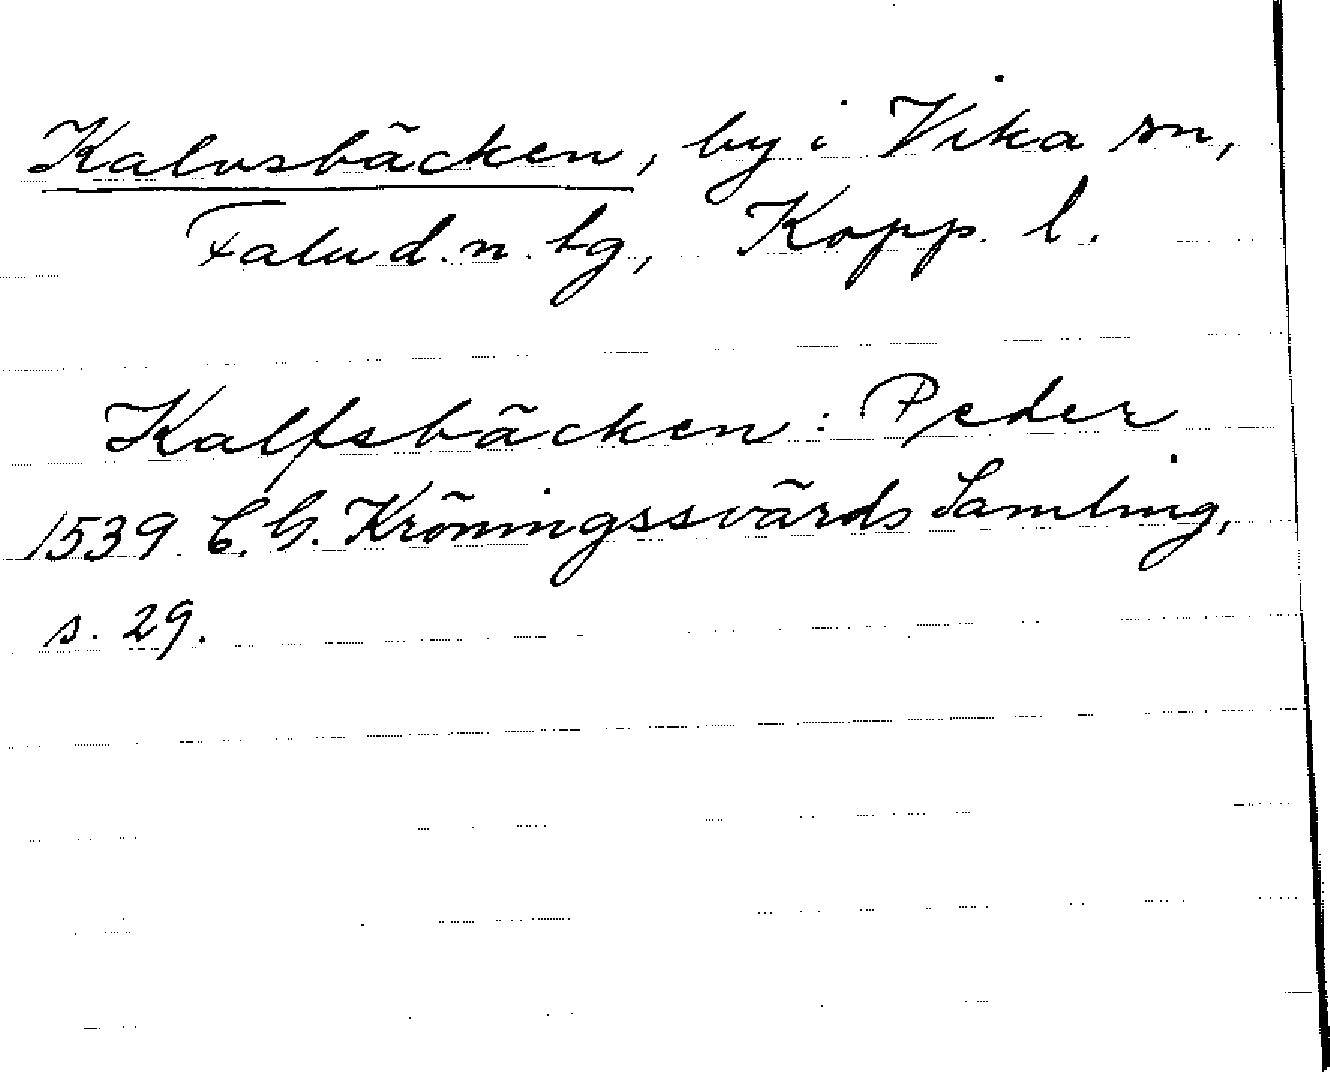 Kalvsbäcken, by i Vika sn,
Falu d. n. tg, Kopp. l.
Kalfsbäcken: Peder
1539 C. G. Kröningssvärds Samling,
s. 29.